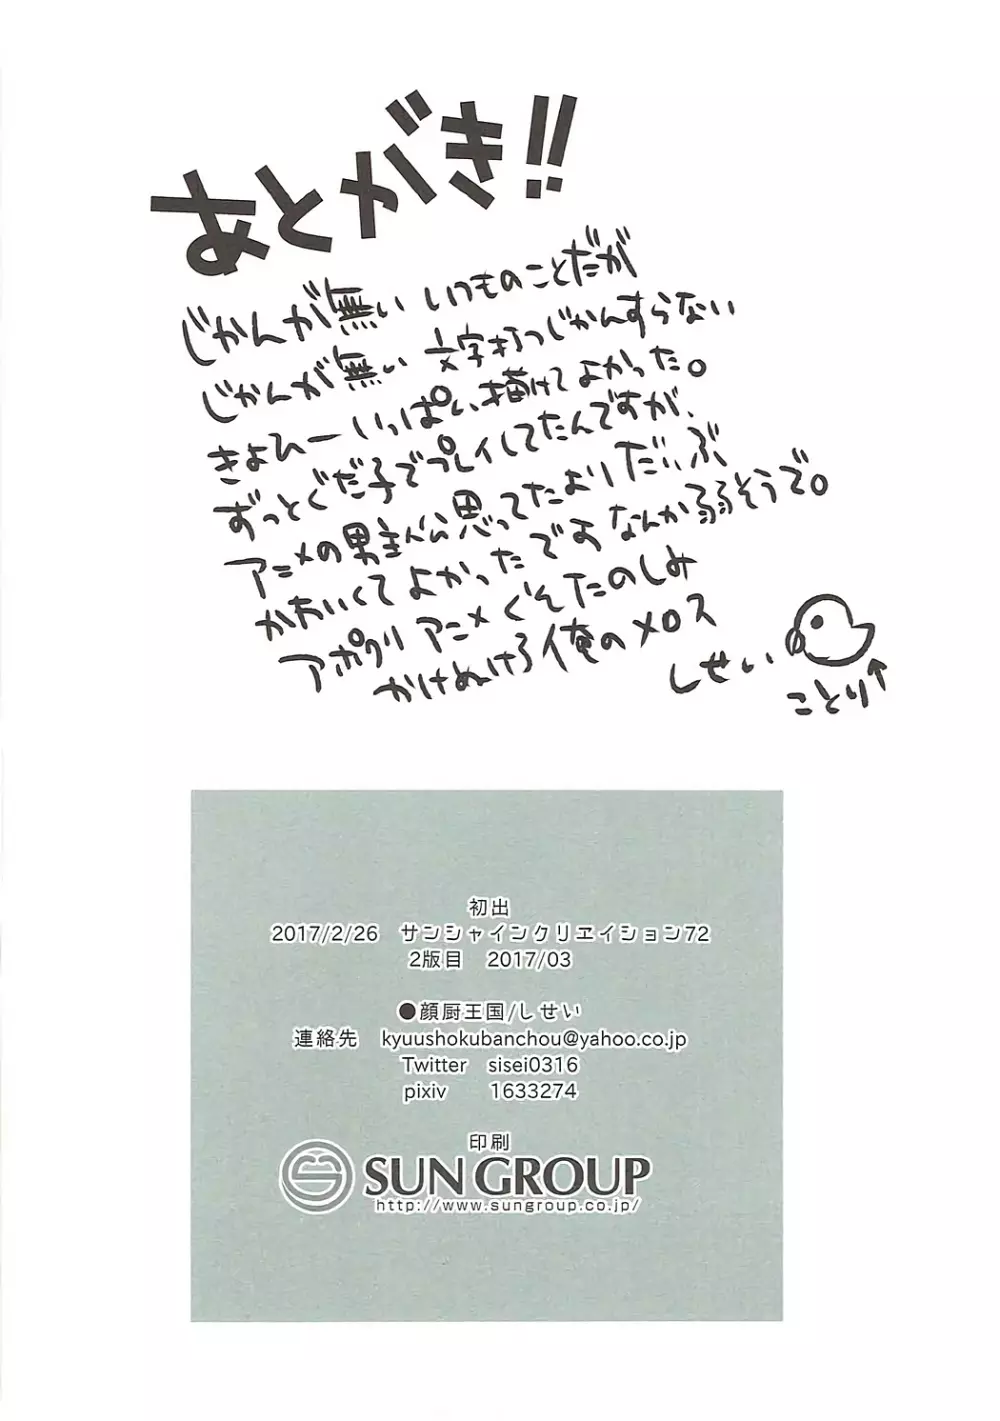 あとがき!!
じかんが無い いつものことだが
じかんが無い 文字打つじかんすらない
きよひー いっぱい描けてよかった。
ずっとぐだ子でプレイしてたんですが、
アニメの男主人公思ってたよりだいぶ
かわいくてよかったです なんか弱そうで。
アポクリ アニメ ぐそたのしみ
かけぬけろ俺のメロス
しせい
ことり↑
初出
2017/2/26 サンシャインクリエイション72
2版目 2017/03
●顔厨王国/しせい
連絡先 kyuushokubanchou@yahoo.co.jp
Twitter sisei0316
pixiv 1633274
印刷
SUN GROUP
http://www.sungroup.co.jp/